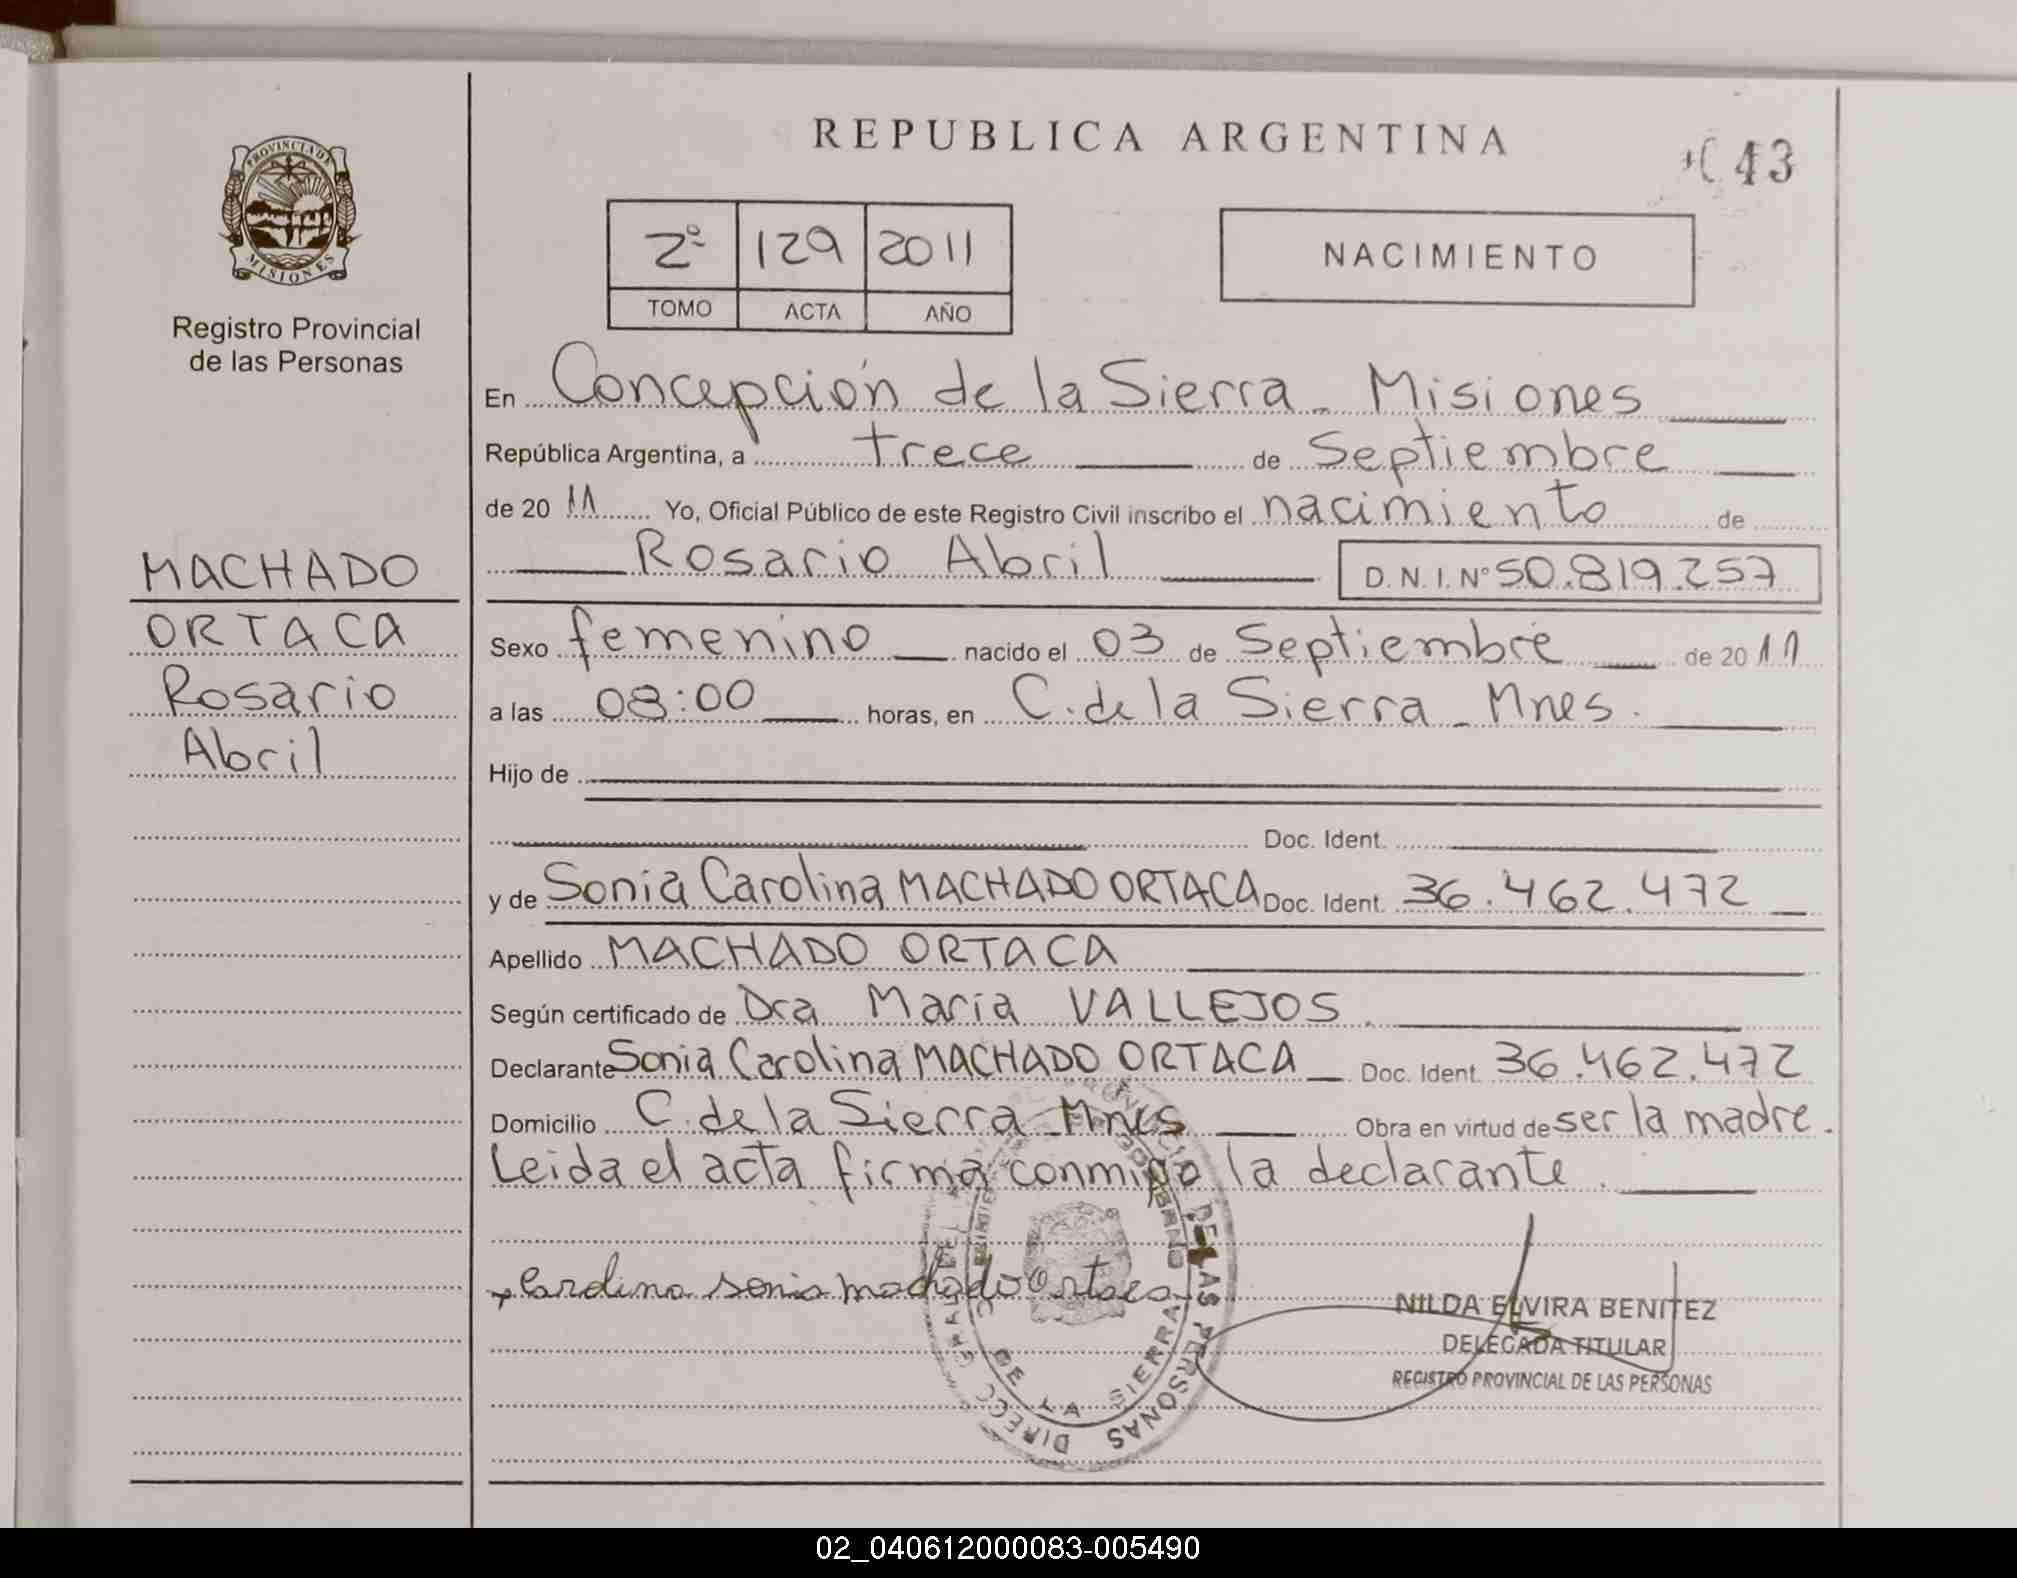 REPUBLICA ARGENTINA
43
PROVINCIA DE
MISIONES
Registro Provincial
de las Personas
2º 129 2011
TOMO ACTA AÑO
NACIMIENTO
En Concepción de la Sierra - Misiones
República Argentina, a trece de Septiembre
de 20 11 Yo, Oficial Público de este Registro Civil inscribo el nacimiento de
MACHADO
ORTACA
Rosario
Abril
Rosario Abril D.N.I. Nº 50.819.257
Sexo femenino nacido el 03 de Septiembre de 20 11
a las 08:00 horas, en C. de la Sierra - Mnes.
Hijo de
Doc. Ident.
y de Sonia Carolina MACHADO ORTACA Doc. Ident. 36.462.472
Apellido MACHADO ORTACA
Según certificado de Dra Maria VALLEJOS.
Declarante Sonia Carolina MACHADO ORTACA Doc. Ident. 36.462.472
Domicilio C. de la Sierra - Mnes Obra en virtud de ser la madre.
Leida el acta firma conmigo la declarante.
sonia machado Ortaca
NILDA ELVIRA BENITEZ
DELEGADA TITULAR
REGISTRO PROVINCIAL DE LAS PERSONAS
DE LAS PERSONAS
DE LA SIERRA
02_040612000083-005490